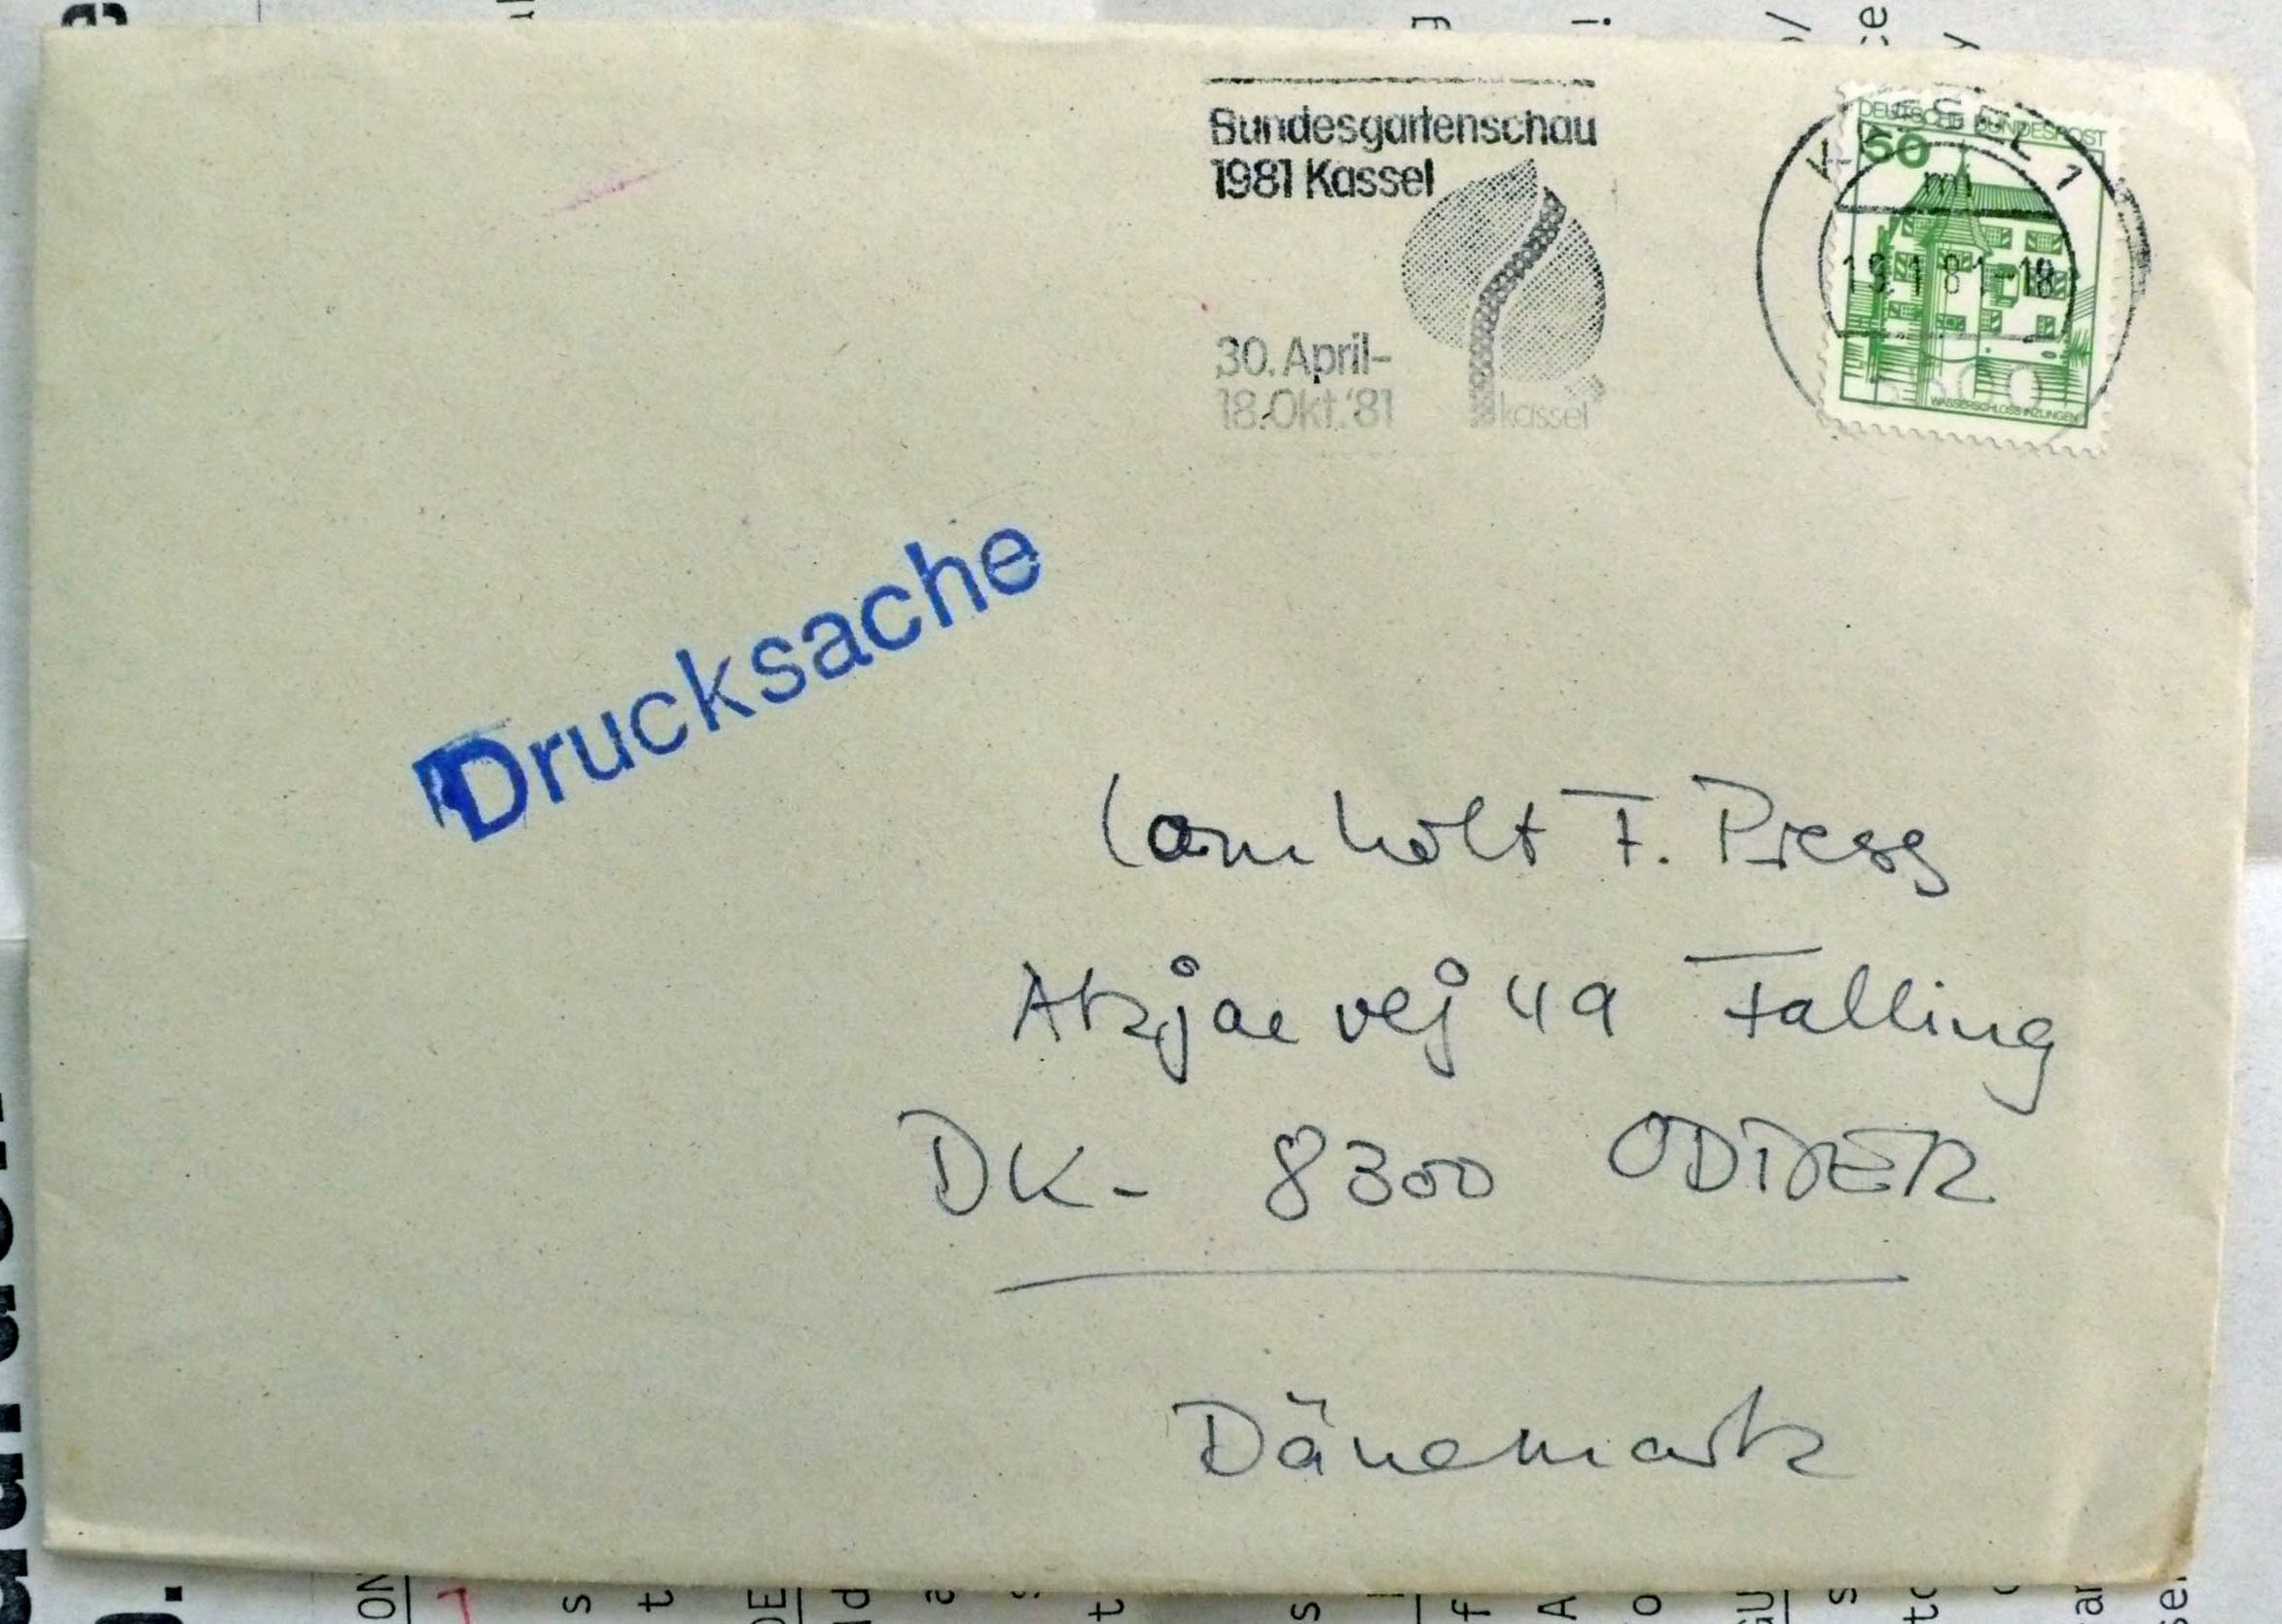 Bundesgartenschau
1981 Kassel
30. April-
18. Okt. '81
kassel
KASSEL 1
mn
19.1.81-18
3500
DEUTSCHE BUNDESPOST
50
WASSERSCHLOSS INZLINGEN
Drucksache
Lomholt F. Press
Akjaervej 49 Falling
DK- 8300 ODDER
Dänemark